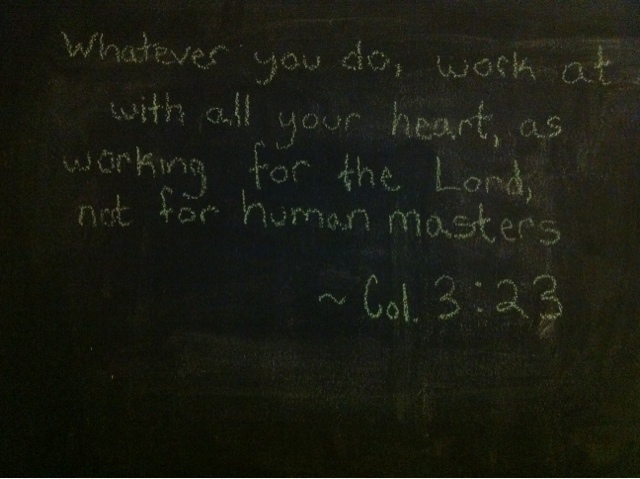 Whatever you do, work at
with all your heart, as
working for the Lord,
not for human masters
~ Col. 3:23